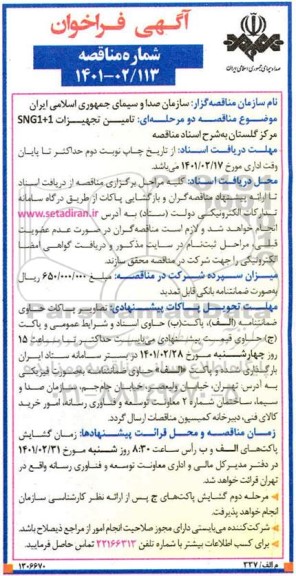 آگهی فراخوان
شماره مناقصه
۱۴۰۱-۰۲/۱۱۳
صدا و سیمای جمهوری اسلامی ایران
نام سازمان مناقصه‌گزار: سازمان صدا و سیمای جمهوری اسلامی ایران
موضوع مناقصه دو مرحله‌ای: تامین تجهیزات SNG1+1
مرکز گلستان به‌شرح اسناد مناقصه
مهلت دریافت اسناد: از تاریخ چاپ نوبت دوم حداکثر تا پایان
وقت اداری مورخ ۱۴۰۱/۰۲/۱۷ می‌باشد.
محل دریافت اسناد: کلیه مراحل برگزاری مناقصه از دریافت اسناد
تا ارائه پیشنهاد مناقصه‌گران و بازگشایی پاکات از طریق درگاه سامانه
تدارکات الکترونیکی دولت (ستاد) به آدرس www.setadiran.ir
انجام خواهد شد و لازم است مناقصه‌گران در صورت عدم عضویت
قبلی، مراحل ثبت‌نام در سایت مذکور و دریافت گواهی امضا
الکترونیکی را جهت شرکت در مناقصه محقق سازند.
میزان سپرده شرکت در مناقصه: مبلغ ۶۵۰/۰۰۰/۰۰۰ ریال
به‌صورت ضمانتنامه بانکی قابل تمدید
مهلت تحویل پاکات پیشنهادی: تصاویر پاکات حاوی
ضمانتنامه (الف)، پاکت(ب) حاوی اسناد و شرایط عمومی و پاکت
(ج) حاوی قیمت پیشنهادی می‌بایست حداکثر تا ساعت ۱۵
روز چهارشنبه مورخ ۱۴۰۱/۰۲/۲۸ در بستر سامانه ستاد ایران
بارگذاری شده و پاکت «الف» حاوی ضمانتنامه به‌صورت فیزیکی
به آدرس: تهران، خیابان ولیعصر، خیابان جام‌جم، سازمان صدا و
سیما، ساختمان شماره ۲ معاونت توسعه و فناوری رسانه، امور خرید
کالای فنی، دبیرخانه کمیسیون مناقصات ارسال گردد.
زمان مناقصه و محل قرائت پیشنهادها: زمان گشایش
پاکت‌های الف و ب رأس ساعت ۸:۳۰ روز شنبه مورخ ۱۴۰۱/۰۲/۳۱
در دفتر مدیرکل مالی و اداری معاونت توسعه و فناوری رسانه واقع در
تهران قرائت خواهد شد.
مرحله دوم گشایش پاکت‌های ج پس از ارائه نظر کارشناسی سازمان
انجام خواهد پذیرفت.
شرکت‌کننده می‌بایستی دارای مجوز صلاحیت انجام امور از مراجع ذیصلاح باشد.
برای کسب اطلاعات بیشتر با شماره تلفن ۲۲۱۶۶۳۱۳ تماس حاصل فرمایید.
م الف/ ۲۳۷
۱۳۰۶۶۷۰